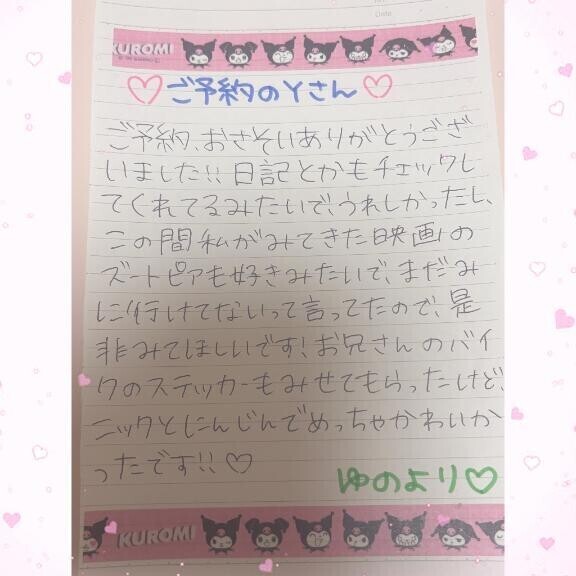 KUROMI
ご予約のYさん
ご予約、おさそいありがとうござ
いました!!日記とかもチェックし
てくれてるみたいで、うれしかったし、
この間私がみてきた映画の
ズートピアも好きみたいで、まだみ
に行けてないって言ってたので、是
非みてほしいです!お兄さんのバイ
クのステッカーもみせてもらったけど、
ニックとにんじんでめっちゃかわいか
ったです!!♡
ゆのより♡
KUROMI